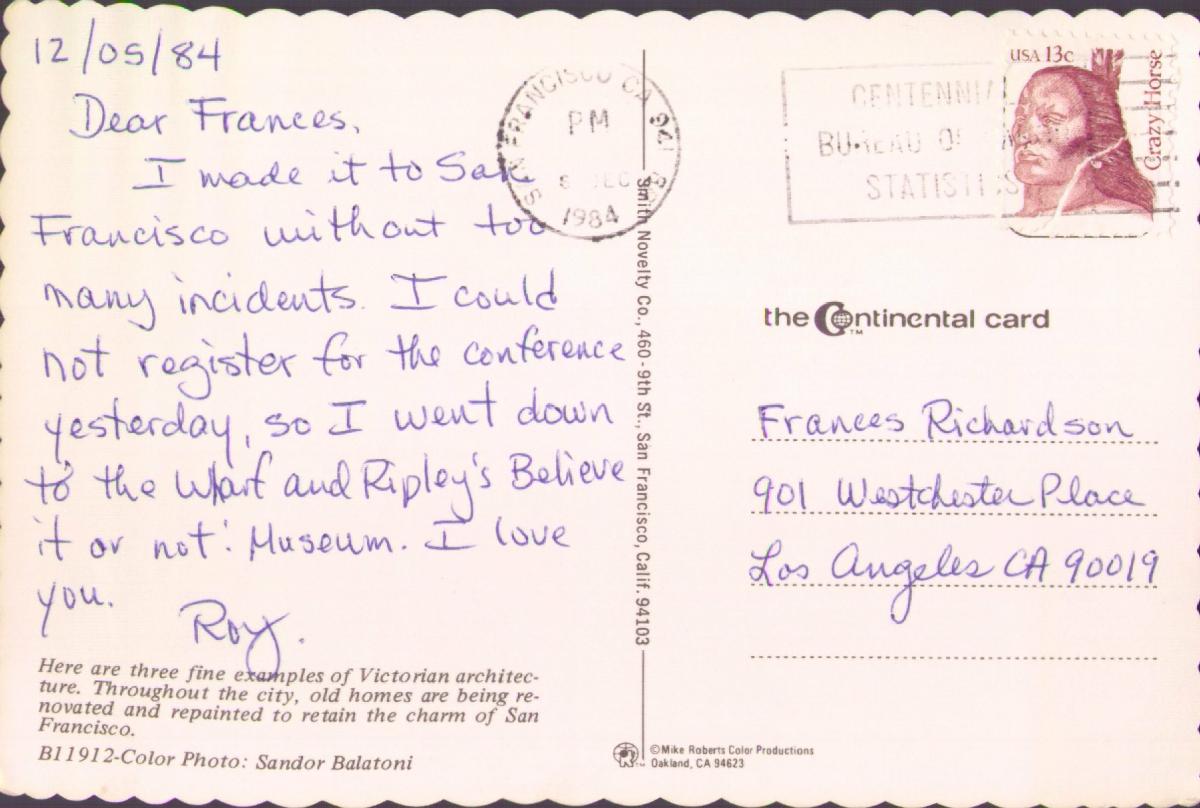 12/05/84
Dear Frances,
I made it to San
Francisco without too
many incidents. I could
not register for the conference
yesterday, so I went down
to the Wharf and Ripley's Believe
it or not! Museum. I love
you.
Roy.
Here are three fine examples of Victorian architec-
ture. Throughout the city, old homes are being re-
novated and repainted to retain the charm of San
Francisco.
B11912-Color Photo: Sandor Balatoni
SAN FRANCISCO CA 941
PM
DEC
1984
Smith Novelty Co., 460 - 9th St., San Francisco, Calif. 94103
©Mike Roberts Color Productions
Oakland, CA 94623
CENTENNIAL
BUREAU OF
STATISTICS
USA 13c
Crazy Horse
the Continental card
TM
Frances Richardson
901 Westchester Place
Los Angeles CA 90019